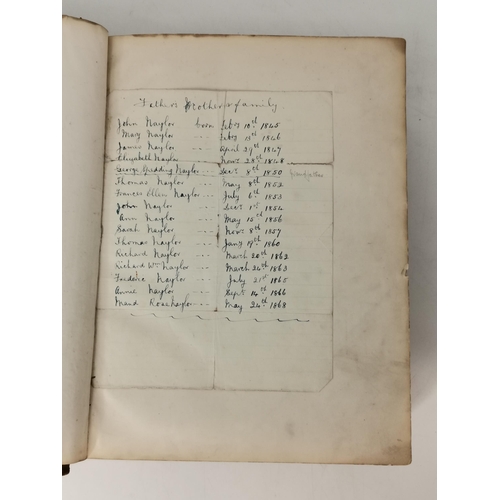 Father's Brothers family
John Naylor born Feby 10th 1845
Mary Naylor " " Feby 15th 1846
James Naylor " " April 29th 1847
Elizabeth Naylor " " Novr 28th 1848
George Naylor " " Decr 8th 1850 Grandfather
Thomas Naylor " " May 8th 1852
Frances Ellen Naylor " " July 6th 1853
John Naylor " " Decr 1st 1854
Ann Naylor " " May 15th 1856
Sarah Naylor " " Novr 8th 1857
Thomas Naylor " " Jany 19th 1860
Richard Naylor " " March 20th 1862
Richard Wm Naylor " " March 24th 1863
Frederic Naylor " " July 21st 1865
Annie Naylor " " Septr 14th 1866
Maud Rose Naylor " " May 24th 1868